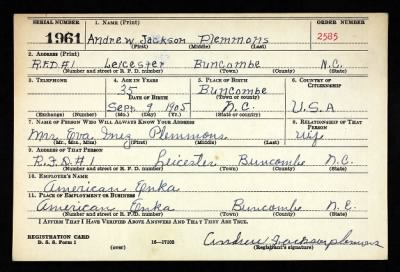 SERIAL NUMBER 1. NAME (Print) ORDER NUMBER
1961 Andrew Jackson Plemmons 2585
(First) (Middle) (Last)
2. ADDRESS (Print)
R.F.D.#1 Leicester Buncombe N.C.
(Number and street or R. F. D. number) (Town) (County) (State)
3. TELEPHONE 4. AGE IN YEARS 5. PLACE OF BIRTH 6. COUNTRY OF CITIZENSHIP
35 Buncombe
DATE OF BIRTH (Town or county)
Sept. 9 1905 N.C. U.S.A
(Exchange) (Number) (Mo.) (Day) (Yr.) (State or country)
7. NAME OF PERSON WHO WILL ALWAYS KNOW YOUR ADDRESS 8. RELATIONSHIP OF THAT PERSON
Mrs. Eva Inez Plemmons Wife
(Mr., Mrs., Miss) (First) (Middle) (Last)
9. ADDRESS OF THAT PERSON
R.F.D.#1 Leicester Buncombe N.C.
(Number and street or R. F. D. number) (Town) (County) (State)
10. EMPLOYER'S NAME
American Enka
11. PLACE OF EMPLOYMENT OR BUSINESS
American Enka Buncombe N.C.
(Number and street or R. F. D. number) (Town) (County) (State)
I AFFIRM THAT I HAVE VERIFIED ABOVE ANSWERS AND THAT THEY ARE TRUE.
REGISTRATION CARD
D. S. S. Form 1 (over) 16—17105 Andrew Jackson plemons
(Registrant's signature)